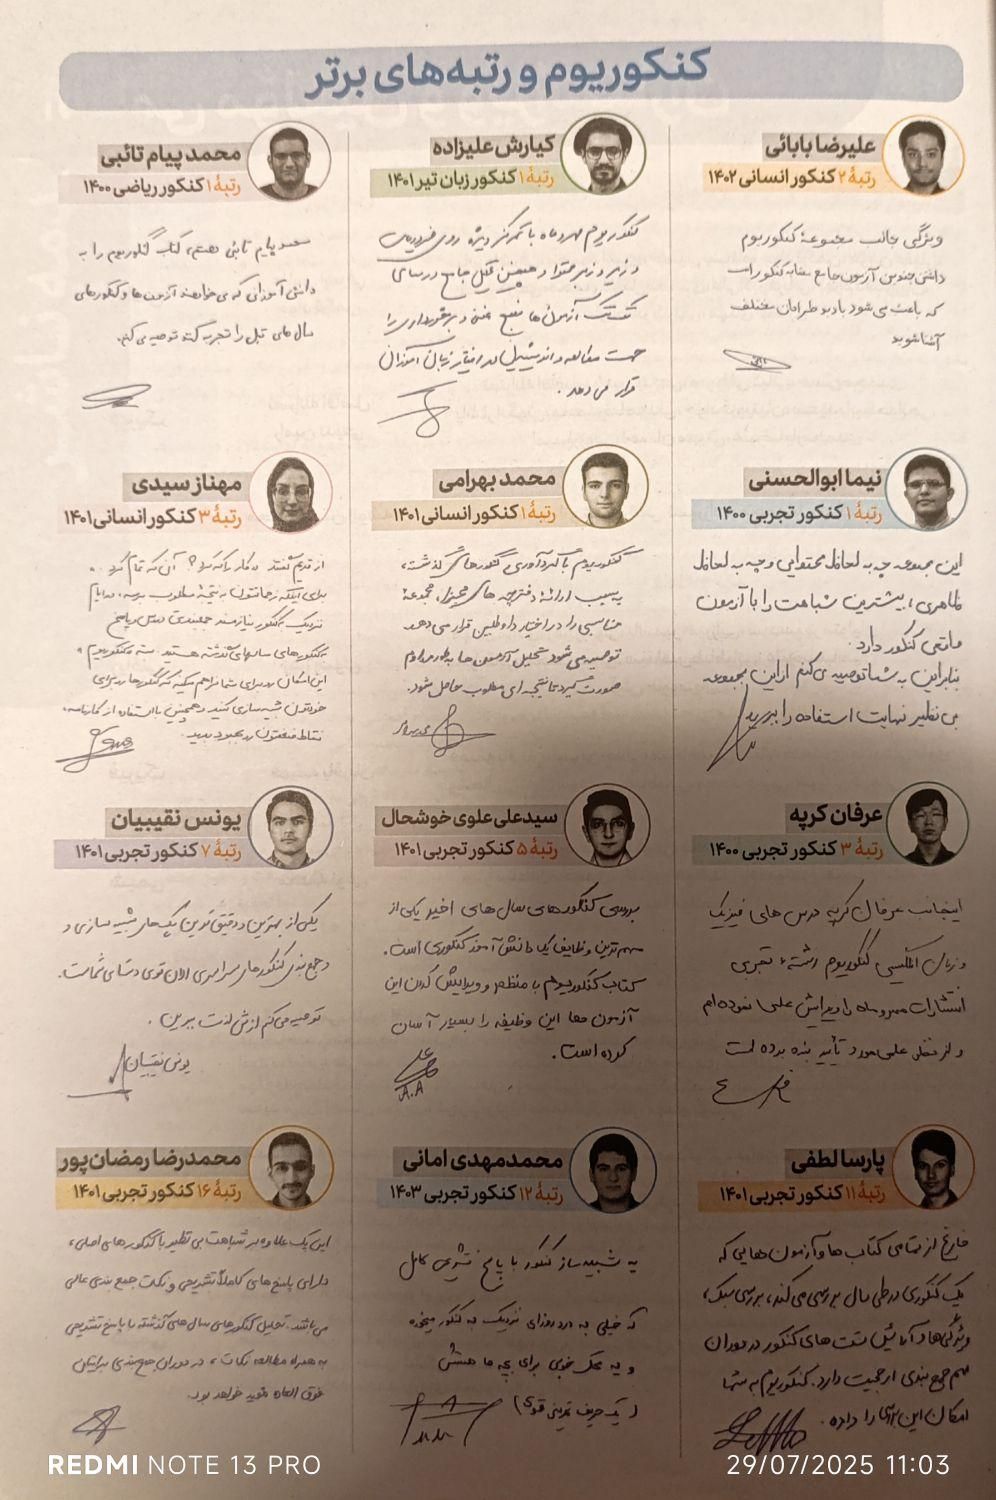 کنکوریوم و رتبه‌های برتر
علیرضا بابائی
رتبهٔ ۲ کنکور انسانی ۱۴۰۲
ویژگی جالب مجموعهٔ کنکوریوم
داشتن چندین آزمون جامع مشابه کنکور است
که باعث می‌شود با دید طراحان مختلف
آشنا شوید
کیارش علیزاده
رتبهٔ ۱ کنکور زبان تیر ۱۴۰۱
کنکوریوم مهروماه با تمرکز ویژه روی
و زیر و زبر محتوا و همچنین تحلیل جامع درسهای
تک‌تک آزمون‌ها منبع غنی و پرمحتوایی را
جهت مطالعه و اندیشیدن در اختیار زبان آموزان
قرار می‌دهد.
محمد پیام تائبی
رتبهٔ ۱ کنکور ریاضی ۱۴۰۰
محمد پیام تائبی هستم، کتاب کنکوریوم را به
دانش‌آموزانی که می‌خواهند آزمون‌ها و کنکورهای
سال‌های قبل را تجربه کنند توصیه می‌کنم.
نیما ابوالحسنی
رتبهٔ ۱ کنکور تجربی ۱۴۰۰
این مجموعه چه به لحاظ محتوایی و چه به لحاظ
ظاهری، بیشترین شباهت را با آزمون
واقعی کنکور دارد.
بنابراین به شما توصیه می‌کنم از این مجموعه
بی نظیر نهایت استفاده را ببرید
محمد بهرامی
رتبهٔ ۱ کنکور انسانی ۱۴۰۱
کنکوریوم با گردآوری کنکورهای گذشته،
به سبب ارائهٔ دفترچه های مجزا، مجموعهٔ
مناسبی را در اختیار داوطلبین قرار می‌دهد
توصیه می‌شود تحلیل آزمون ها به طور مداوم
صورت گیرد تا نتیجه ای مطلوب حاصل شود.
مهناز سیدی
رتبهٔ ۳ کنکور انسانی ۱۴۰۱
از قدیم گفتند کار را که کرد؟ آن که تمام کرد...
برای اینکه زحماتتون به نتیجهٔ مطلوب برسه، در ایام
نزدیک کنکور نیازمند جمعبندی درس و پاسخ
به کنکورهای سالهای گذشته هستید. بسته «کنکوریوم»
این امکان رو برای شما فراهم میکنه که کنکور رو برای
خودتون شبیه‌سازی کنید و همچنین با استفاده از کارنامه،
نقاط ضعفتون رو بهبود بدید.
عرفان کرپه
رتبهٔ ۳ کنکور تجربی ۱۴۰۰
اینجانب عرفان کرپه درس های فیزیک
و زبان انگلیسی کنکوریوم رشتهٔ تجربی
انتشارات مهروماه را ویرایش علمی نموده‌ام
و از نظر علمی مورد تأیید بنده بوده است
سیدعلی علوی خوشحال
رتبهٔ ۵ کنکور تجربی ۱۴۰۱
بررسی کنکورهای سال های اخیر یکی از
مهم‌ترین وظایف یک دانش آموز کنکوری است.
کتاب کنکوریوم با منظم و ویرایش کردن این
آزمون ها این وظیفه را بسیار آسان
کرده است.
A.A
یونس نقیبیان
رتبهٔ ۷ کنکور تجربی ۱۴۰۱
یکی از بهترین و دقیق‌ترین پک‌های شبیه سازی و
جمع بندی کنکورهای سراسری اخیر
توصیه می‌کنم ازش لذت ببرین.
یونس نقیبیان
پارسا لطفی
رتبهٔ ۱۱ کنکور تجربی ۱۴۰۱
فارغ از تمامی کتاب ها و آزمون هایی که
یک کنکوری در طی سال بررسی می‌کند، بررسی سبک،
ویژگی‌ها و آنالیز تست های کنکور در دوران
مهم جمع بندی ارجحیت دارد. کنکوریوم به شما
امکان این بررسی را داده.
محمدمهدی امانی
رتبهٔ ۱۲ کنکور تجربی ۱۴۰۳
یه شبیه‌ساز کنکور با پاسخ تشریحی کامل
که خیلی به درد روزای نزدیک به کنکور میخوره
و یه محک خوبی برای بچه ها هستش
(یک حریف تمرینی قوی)
محمدرضا رمضان‌پور
رتبهٔ ۱۶ کنکور تجربی ۱۴۰۱
این پک علاوه بر شباهت بی نظیر با کنکورهای اصلی،
دارای پاسخ‌های کاملاً تشریحی و نکات جمع بندی عالی
می‌باشد. تحلیل کنکورهای سال‌های گذشته با پاسخ تشریحی
به همراه مطالعه نکات، در دوران جمع‌بندی برایتان
فوق العاده مفید خواهد بود.
REDMI NOTE 13 PRO
29/07/2025 11:03